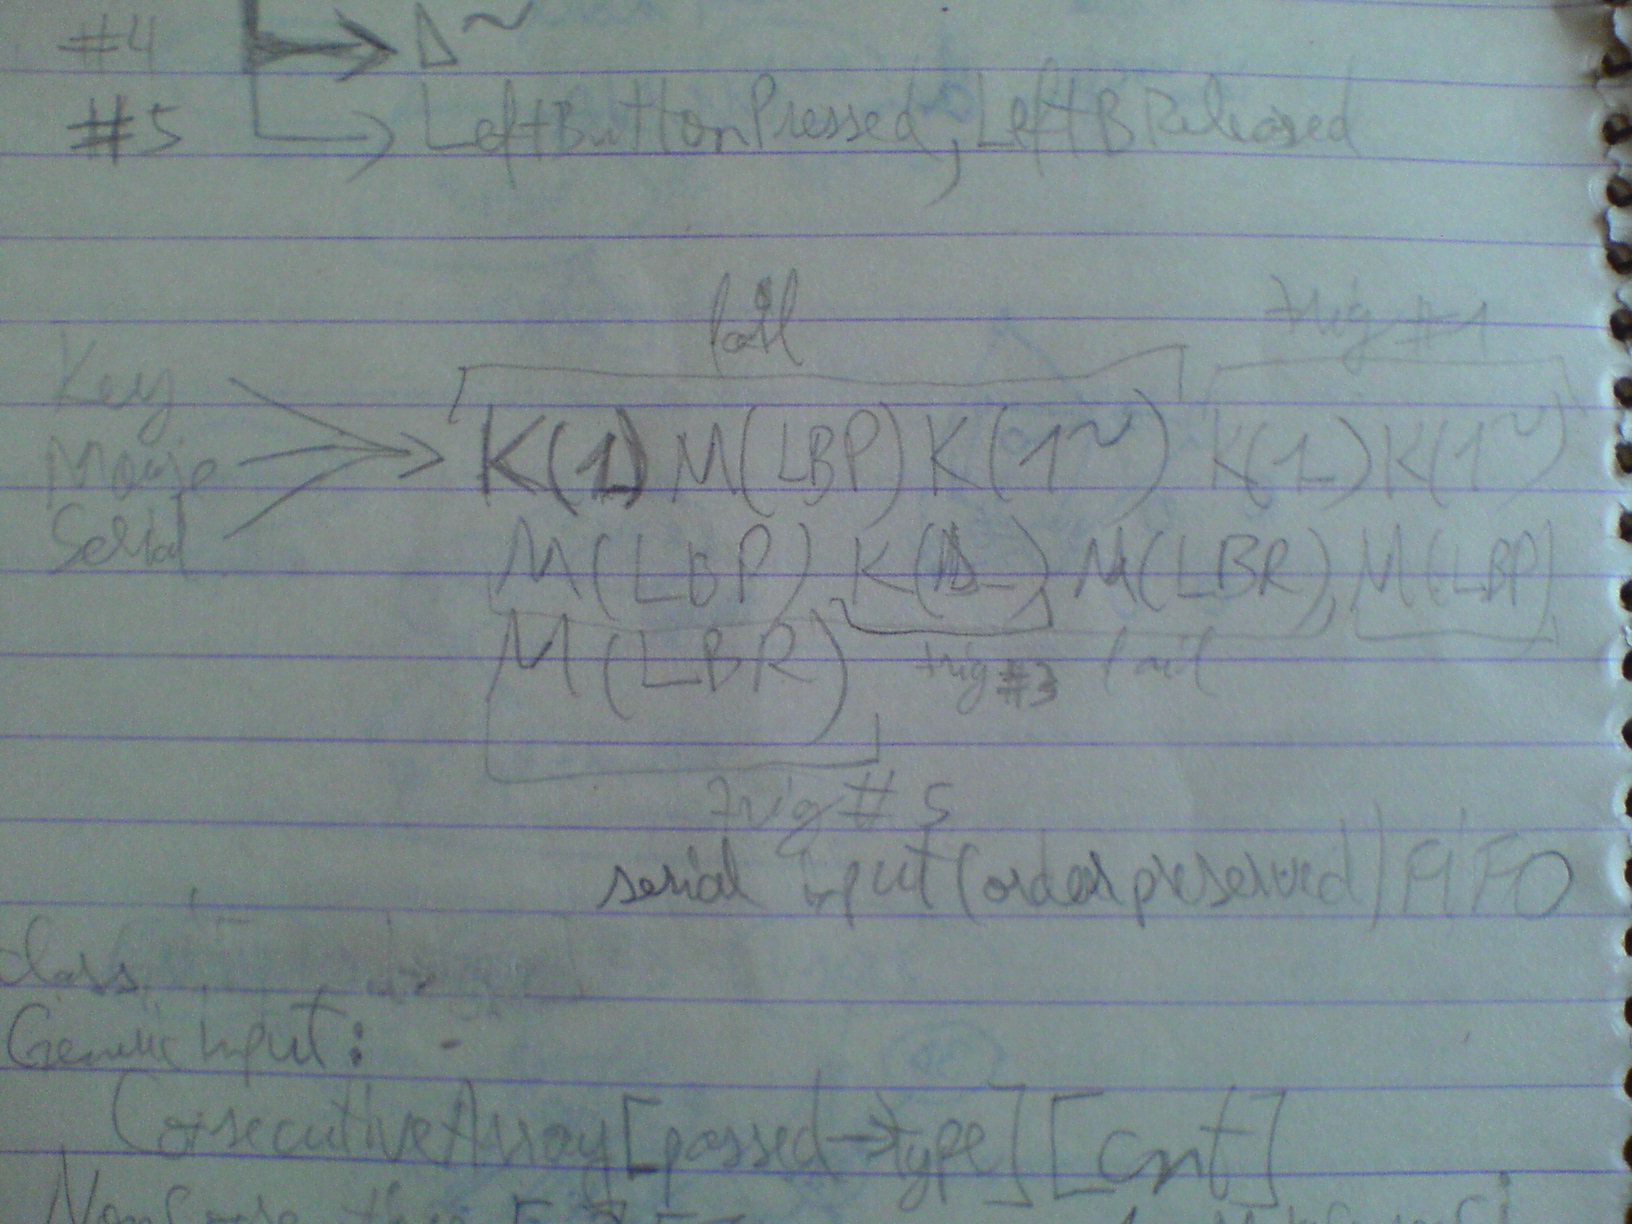 #4 → Δ~
#5 → LeftButtonPressed, LeftBReleased
fail trig #1
Key
Mouse
Serial
K(1) M(LBP) K(1~) K(1_) K(1~)
M(LBP), K(Δ_), M(LBR), M(LBP)
M(LBR) trig #3 fail
trig # 5
serial input (order preserved) FIFO
class
Generic Input: -
ConsecutiveArray[passed→type][cnt]